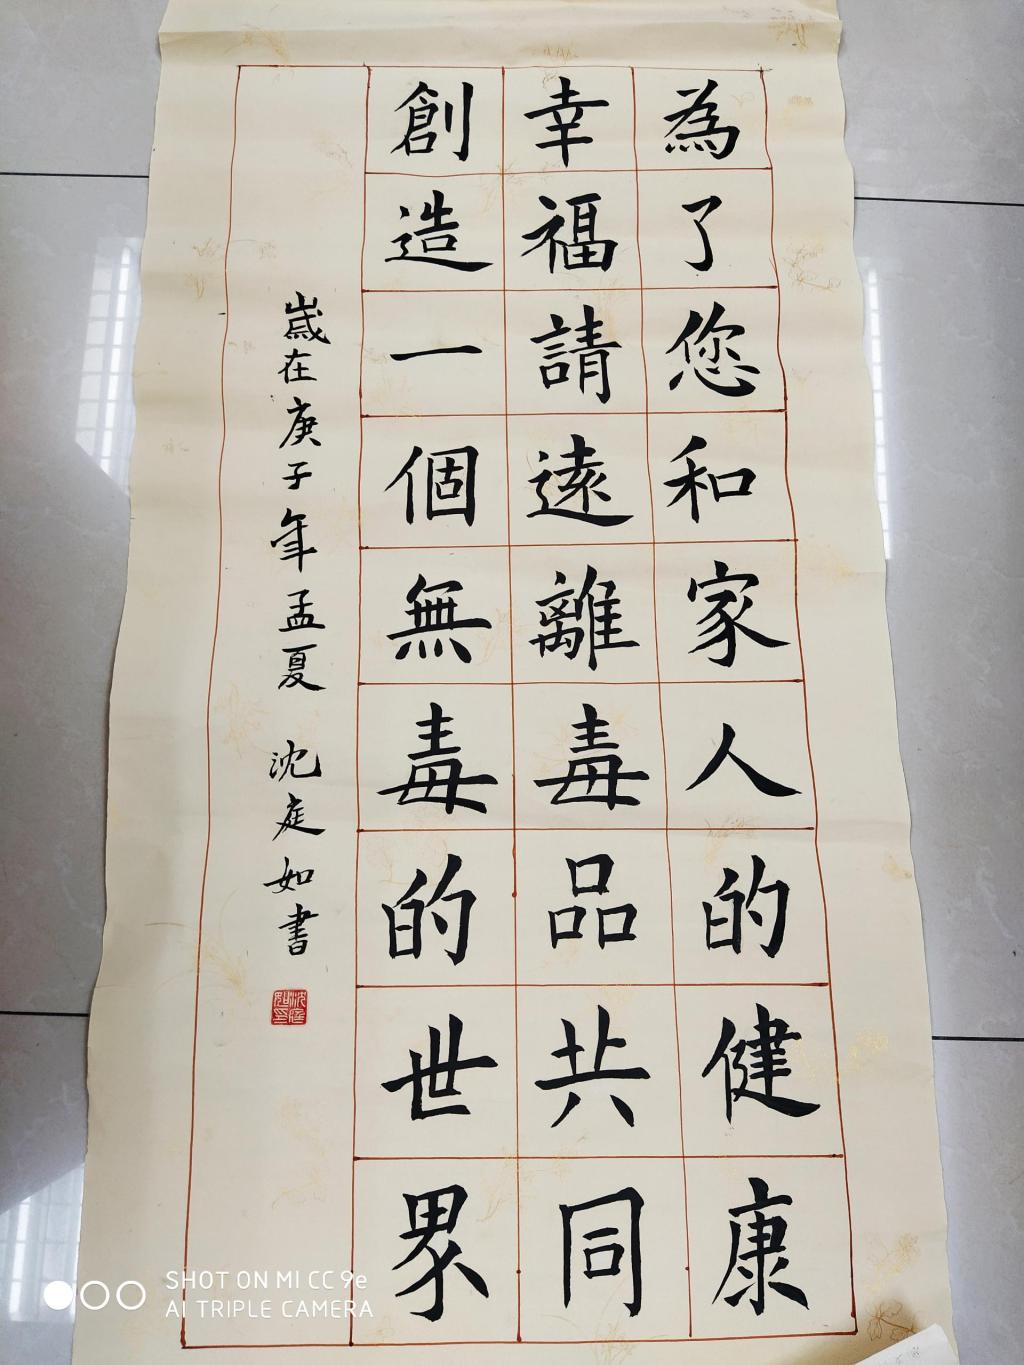 為了您和家人的健康
幸福請遠離毒品共同
創造一個無毒的世界
歲在庚子年孟夏 沈庭如書
SHOT ON MI CC 9e
AI TRIPLE CAMERA